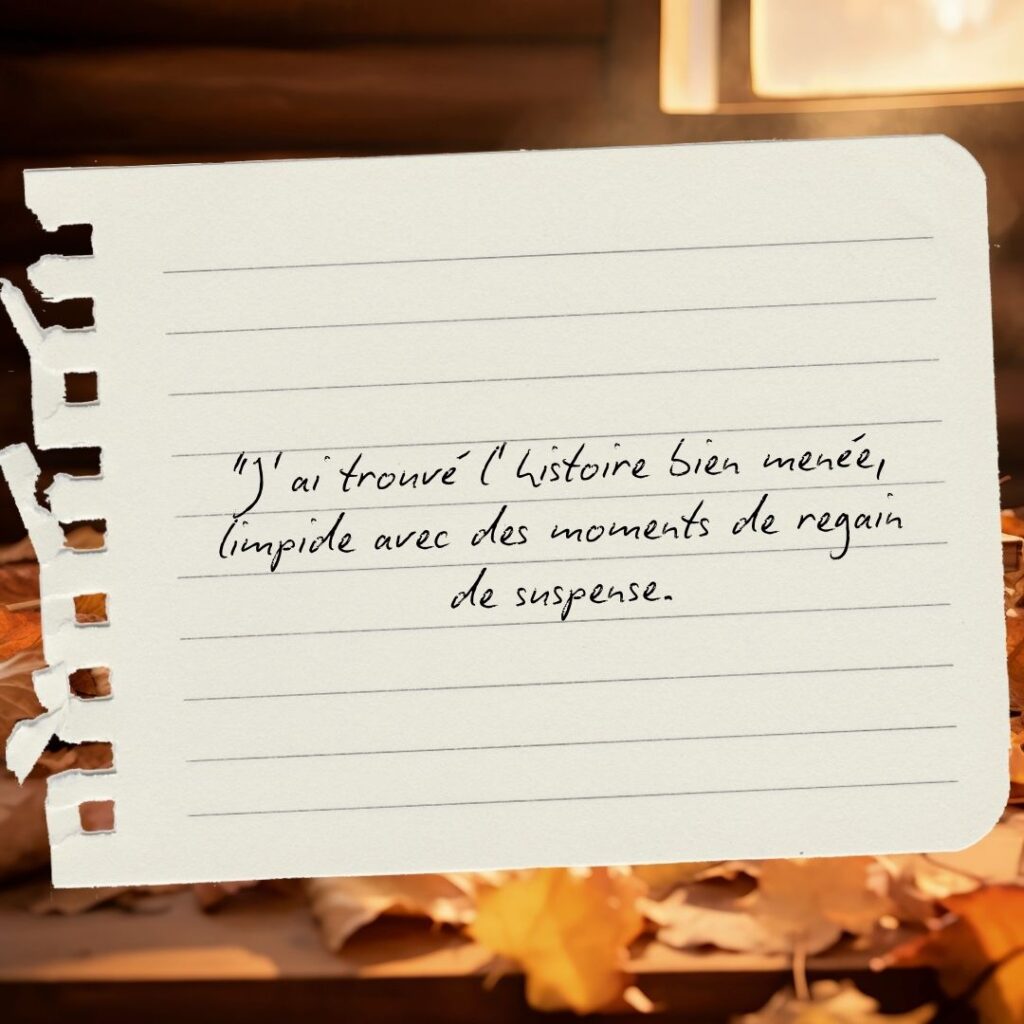 "J'ai trouvé l'histoire bien menée,
limpide avec des moments de regain
de suspense.